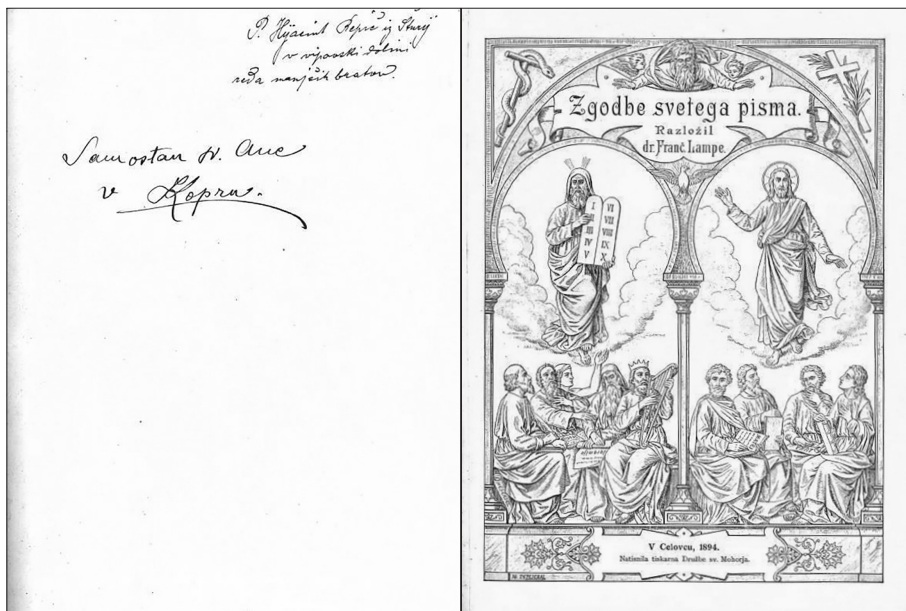 P. Hijacint Repič iz Šturij
v vipavski dolini
reda manjših bratov.
Samostan sv. Ane
v Kopru.
Zgodbe svetega pisma.
Razložil
dr. Franč. Lampe.
I VI
II VII
III VIII
IV IX
V X
V Celovcu, 1894.
Natisnila tiskarna Družbe sv. Mohorja.